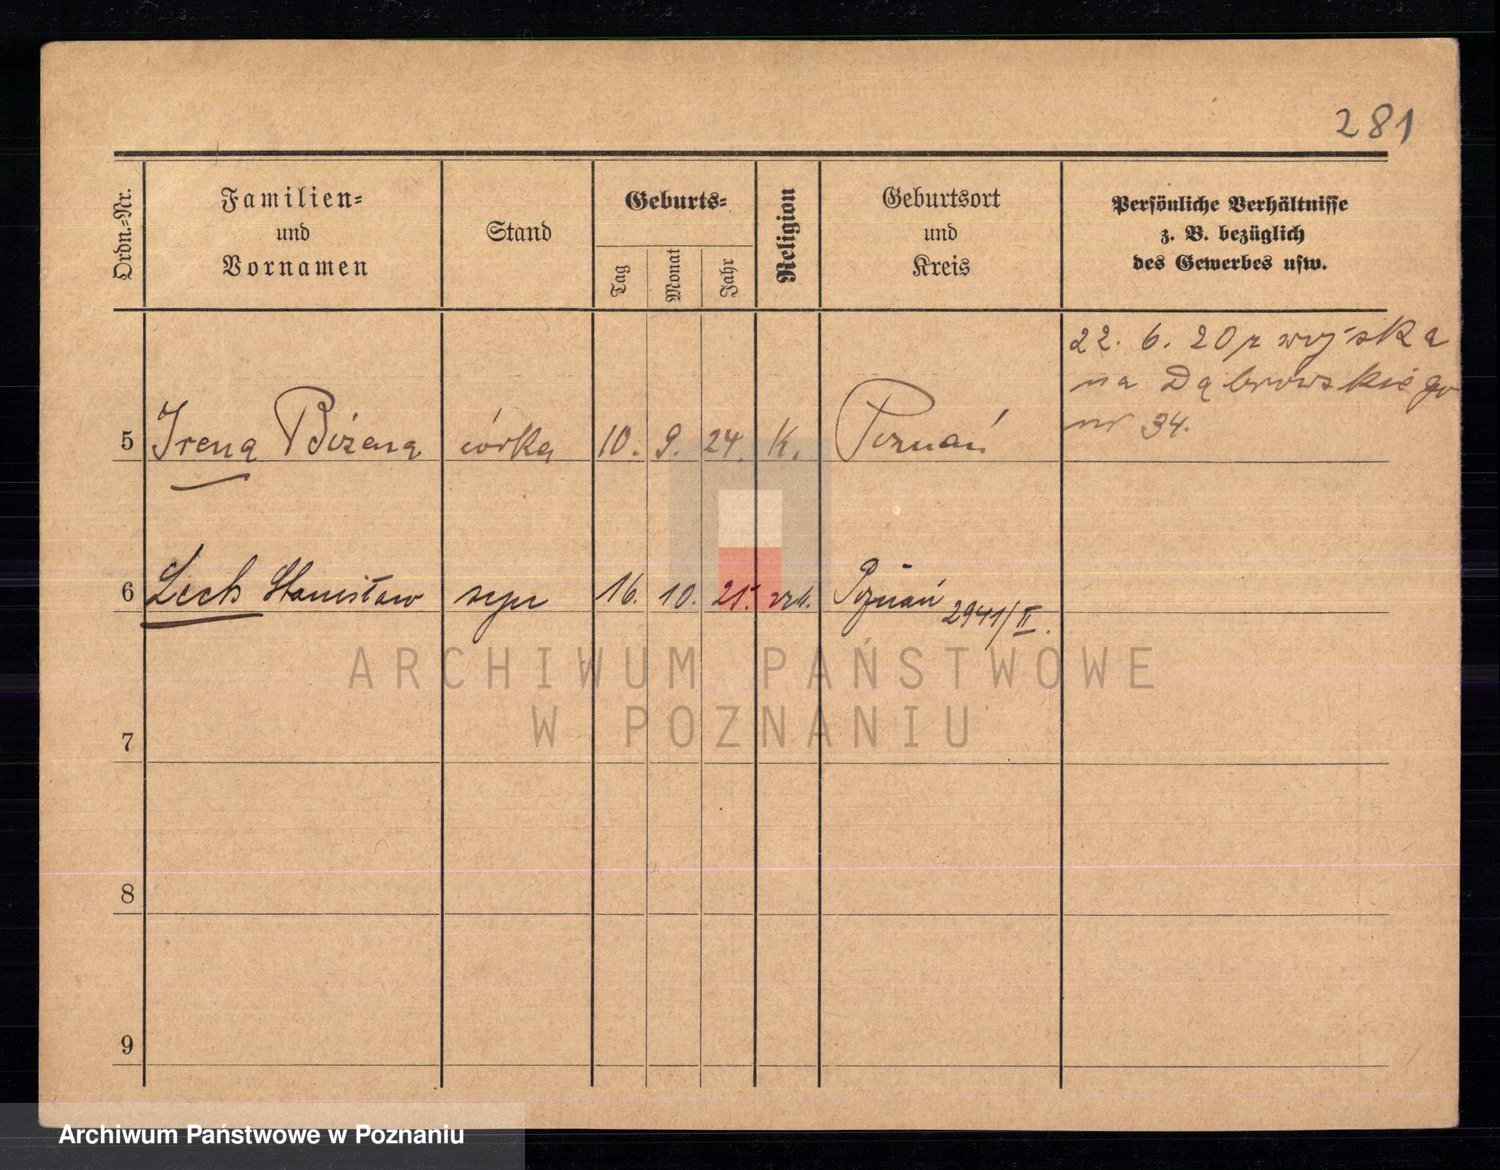 281
Ordn.-Nr.
Familien-
und
Vornamen
Stand
Geburts-
Tag
Monat
Jahr
Religion
Geburtsort
und
Kreis
Persönliche Verhältnisse
z. B. bezüglich
des Gewerbes usw.
22. 6. 20 z wojska
na Dąbrowskiego
nr 34.
5 Irena Bożena córka 10. 9. 24. K. Poznań
6 Lech Stanisław syn 16. 10. 25. rzk. Poznań 2941/II.
ARCHIWUM PAŃSTWOWE
W POZNANIU
7
8
9
Archiwum Państwowe w Poznaniu